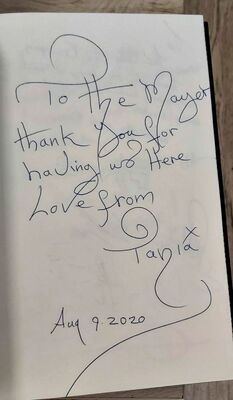 To The Mayer
thank You for
having us Here
Love from
Tania x
Aug 9. 2020